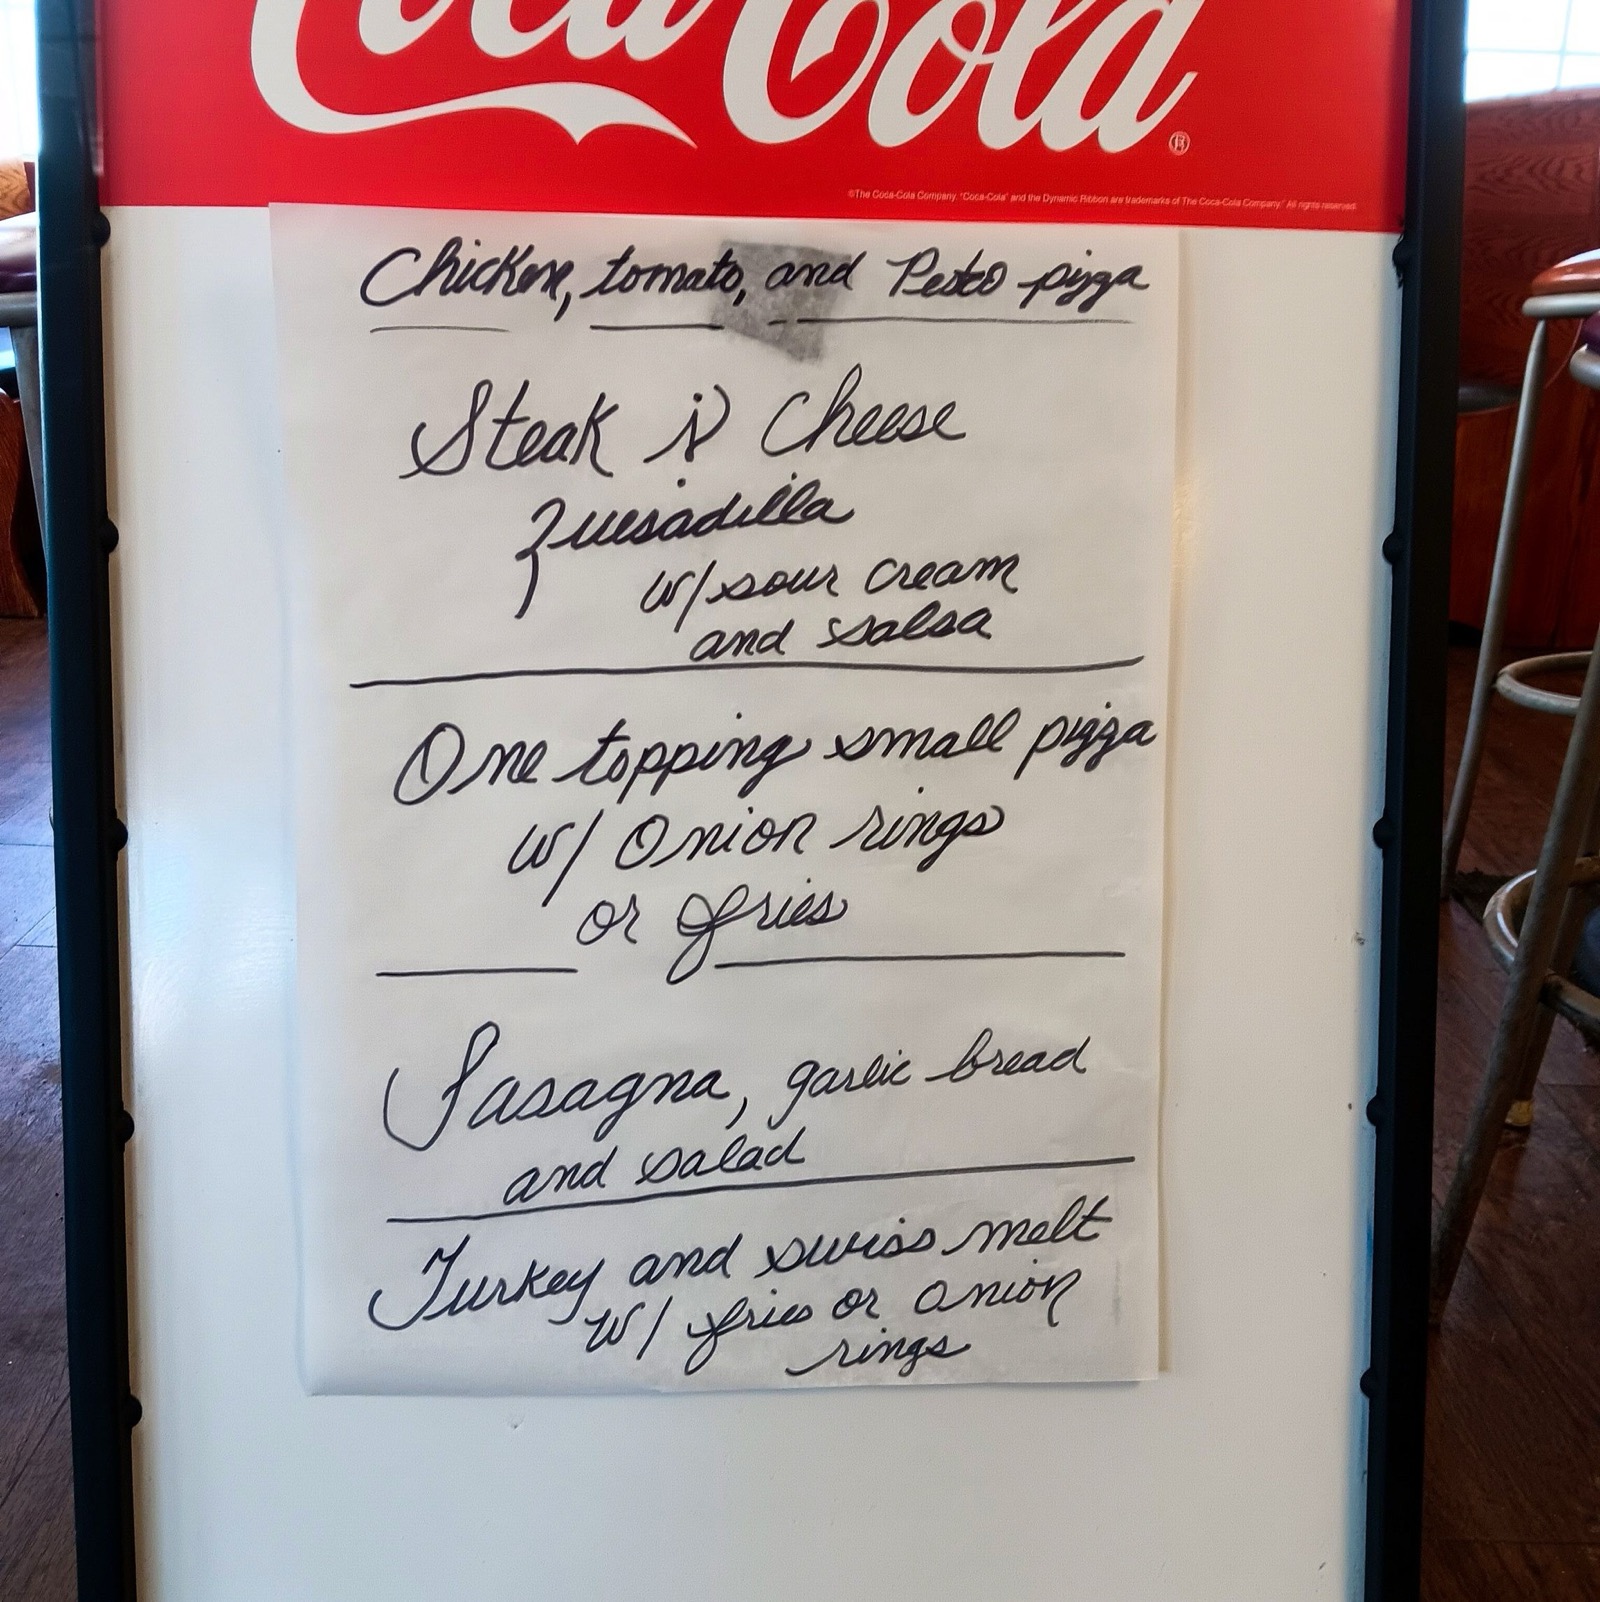 Coca-Cola
®
©The Coca-Cola Company. "Coca-Cola" and the Dynamic Ribbon are trademarks of The Coca-Cola Company. All rights reserved.
Chicken, tomato, and Pesto pizza
Steak n Cheese
Quesadilla
w/ sour cream
and salsa
One topping small pizza
w/ Onion rings
or fries
Lasagna, garlic bread
and salad
Turkey and swiss melt
w/ fries or onion
rings